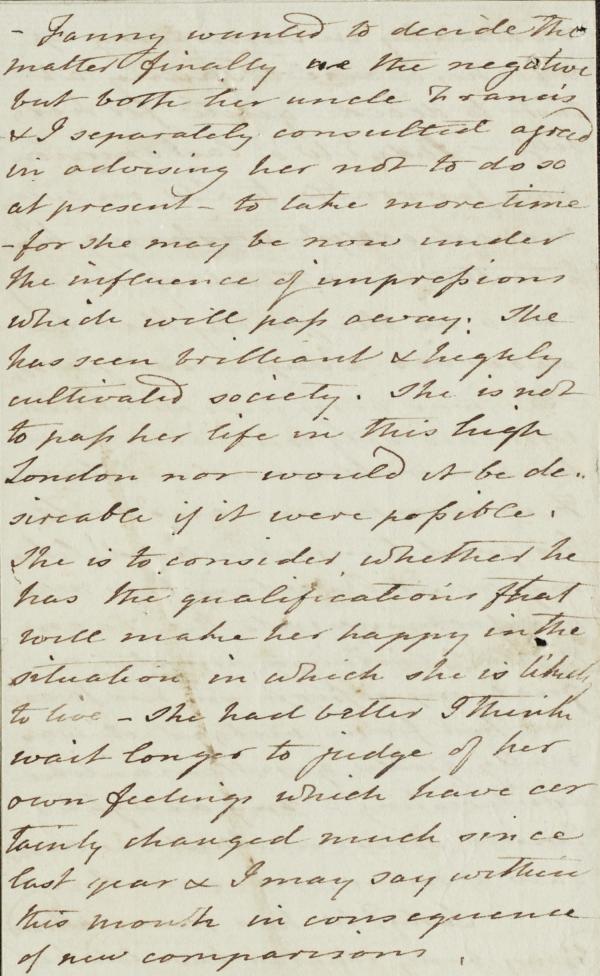 - Fanny wanted to decide the
matter finally in the negative
but both her uncle Francis
& I separately consulted agreed
in advising her not to do so
at present - to take more time
- for she may be now under
the influence of impressions
which will pass away. She
has seen brilliant & highly
cultivated society. She is not
to pass her life in this high
London nor would it be de-
sireable if it were possible.
She is to consider whether he
has the qualifications that
will make her happy in the
situation in which she is likely
to live - She had better I think
wait longer to judge of her
own feelings which have cer
tainly changed much since
last year & I may say within
this month in consequence
of new comparisons.